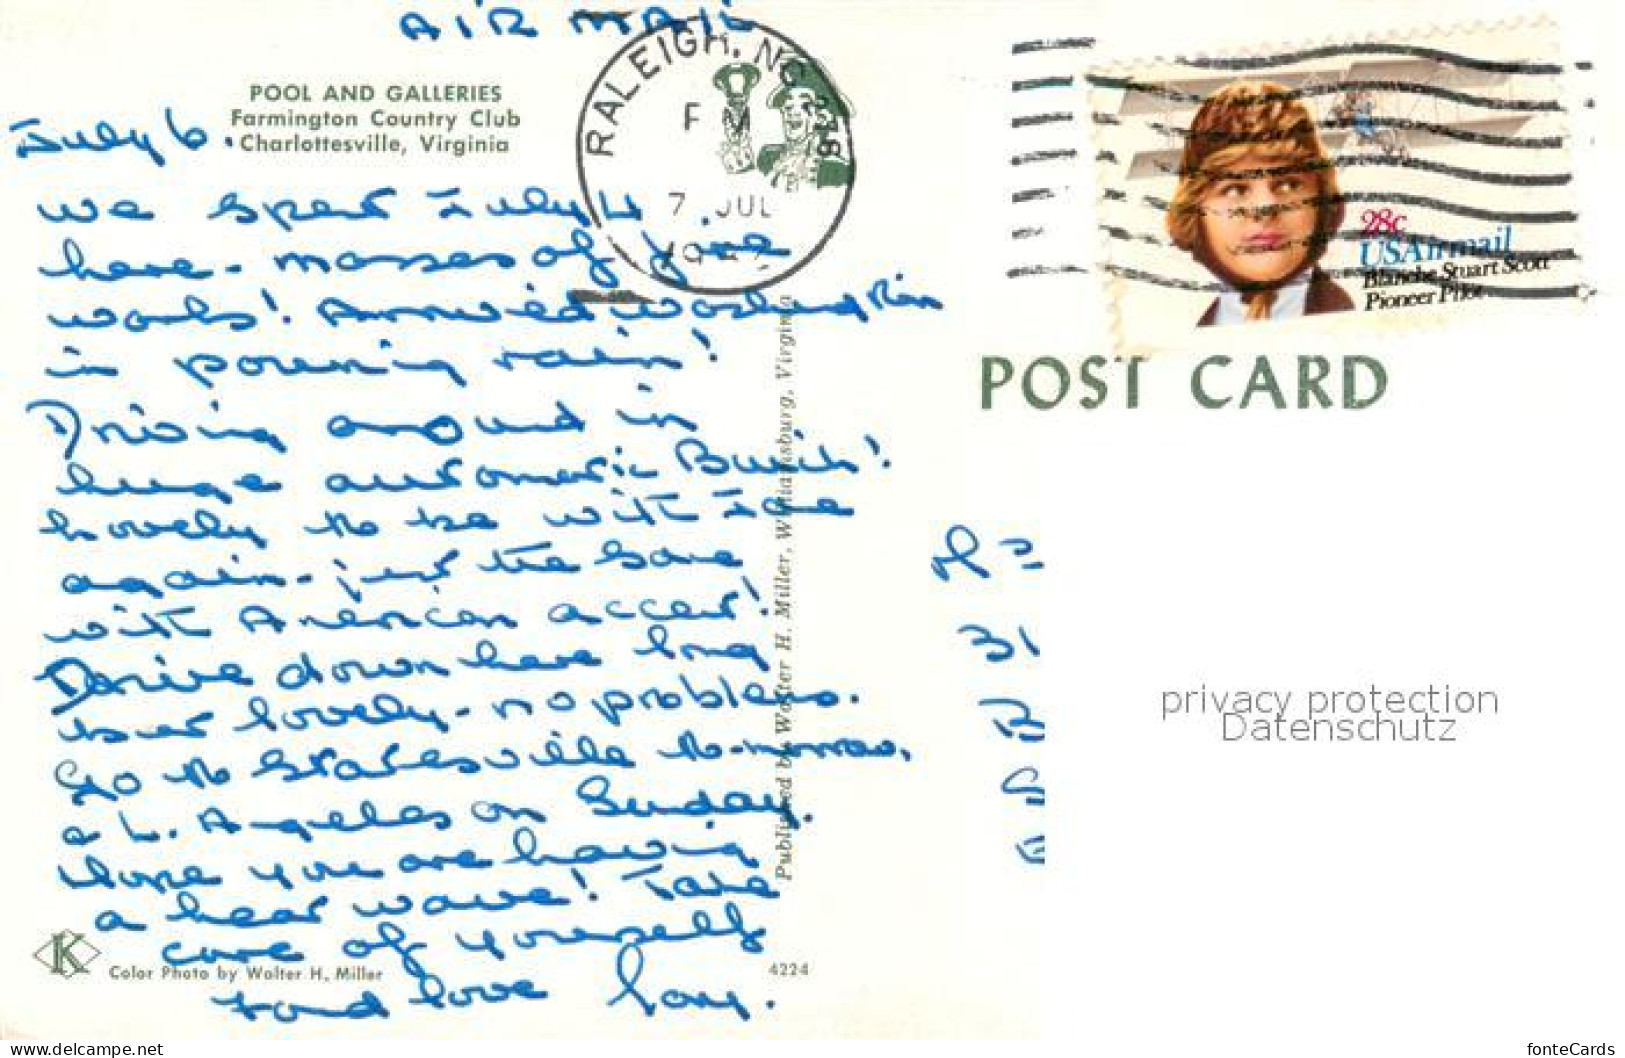 AIR MAIL
POOL AND GALLERIES
Farmington Country Club
Charlottesville, Virginia
RALEIGH, NC
PM
7 JUL
July 6.
We spent July 4
here - masses of fire
works! Arrived Washington
in pouring rain!
Driving around in
huge automatic Buick!
Lovely to be with Jane
again - just the same
with American accent!
Drive down here long
but lovely - no problems.
Go to Statesville to-morrow.
& L. Angeles on Sunday.
Hope you are having
a heat wave! Take
care of yourself
Fond love
28c
USAirmail
Blanche Stuart Scott
Pioneer Pilot
POST CARD
Published by Walter H. Miller, Williamsburg, Virginia
privacy protection
Datenschutz
K
Color Photo by Walter H. Miller
4224
www.delcampe.net
fonteCards